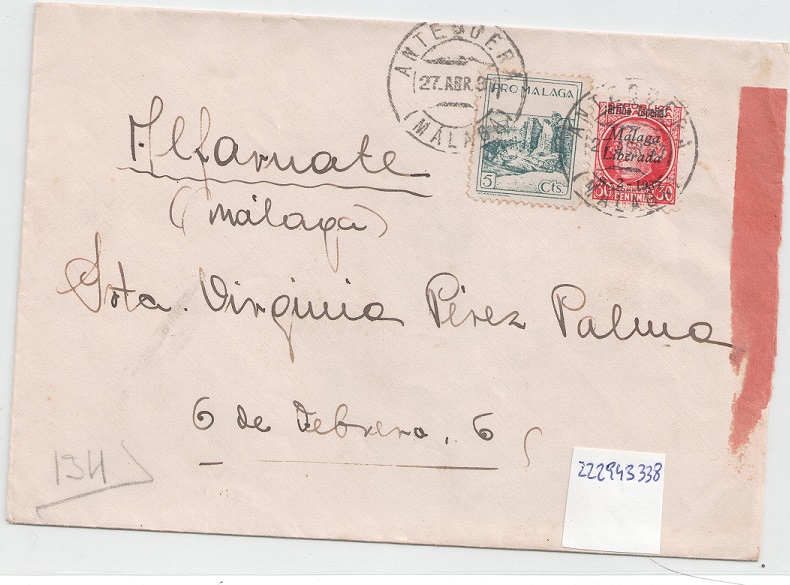 ANTEQUERA
27.ABR.37
(MALAGA)
PRO MALAGA
5 Cts.
ANTEQUERA
MALAGA
¡Arriba España!
Málaga
Liberada
30 CENTIMOS 30
Alfarnate
(Málaga)
Srta. Virginia Pérez Palma
6 de Febrero, 6
222943338